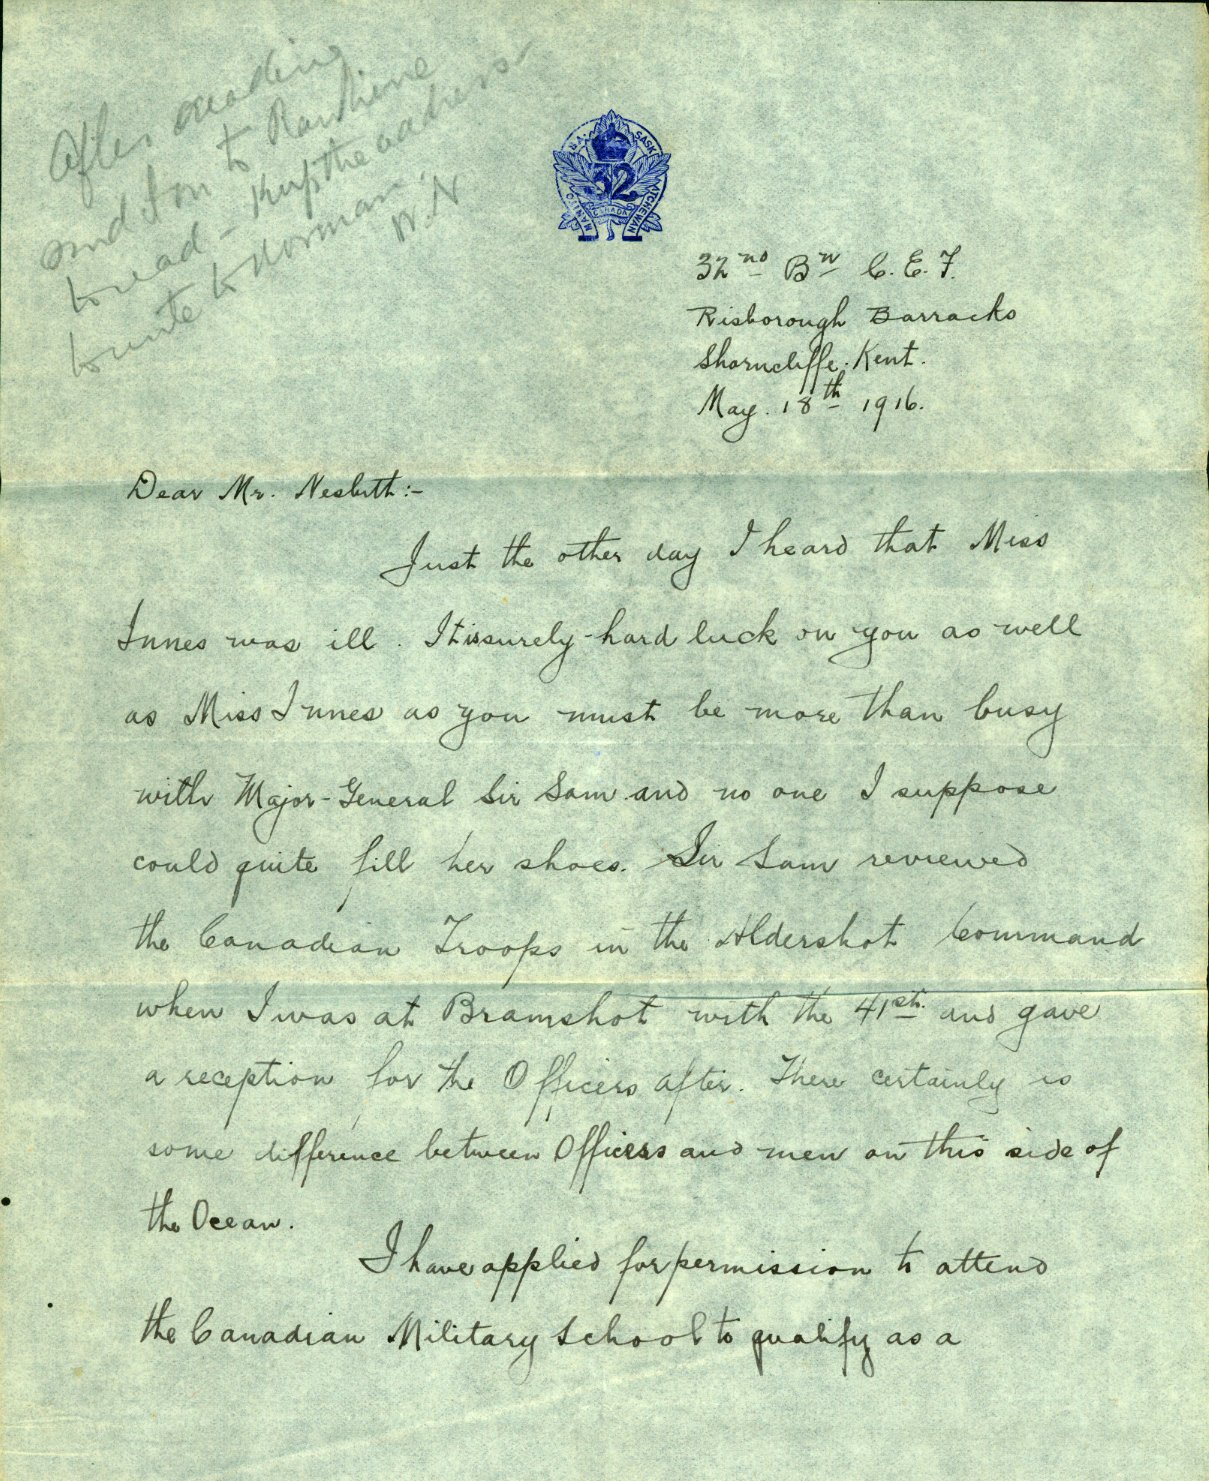 After reading
send it on to
to read - Keep the address
to write to Norman.
W.N
MANITOBA. SASKATCHEWAN
32
CANADA
32nd Bn C.E.F.
Risborough Barracks
Shorncliffe. Kent.
May. 18th 1916.
Dear Mr. Nesbitt:-
Just the other day I heard that Miss
Innes was ill. It is surely hard luck on you as well
as Miss Innes as you must be more than busy
with Major-General Sir Sam and no one I suppose
could quite fill her shoes. Sir Sam reviewed
the Canadian Troops in the Aldershot Command
when I was at Bramshot with the 41st. and gave
a reception for the Officers after. There certainly is
some difference between Officers and men on this side of
the Ocean.
I have applied for permission to attend
the Canadian Military School to qualify as a